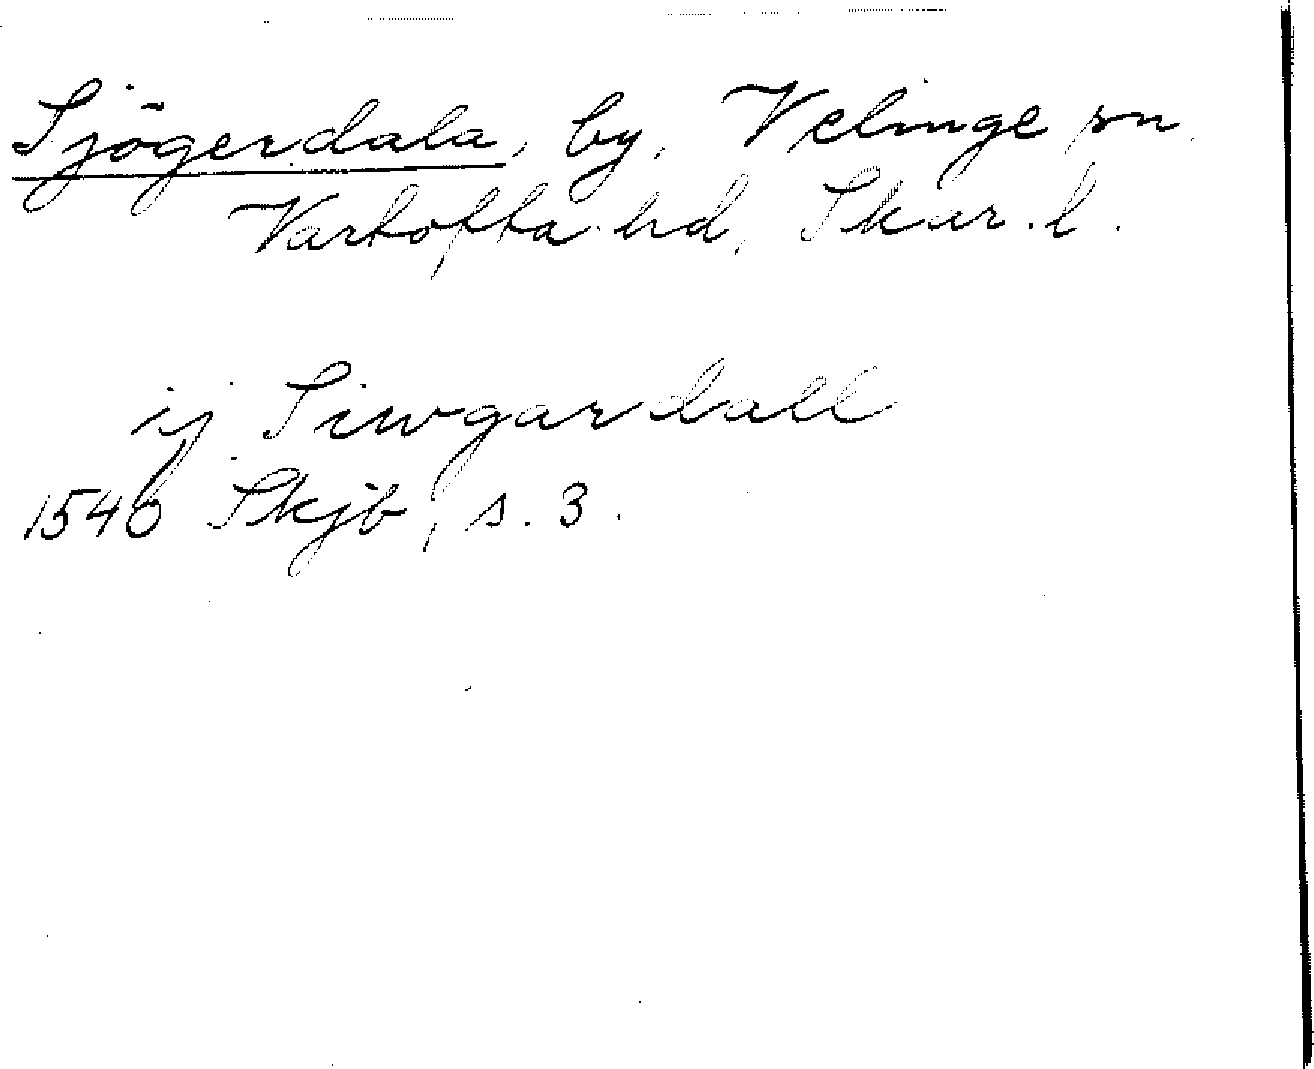 Sjögerdala, by, Velinge sn
Vartofta hd, Skar. l.
ij Siwgardall
1546 Skjb, s. 3.